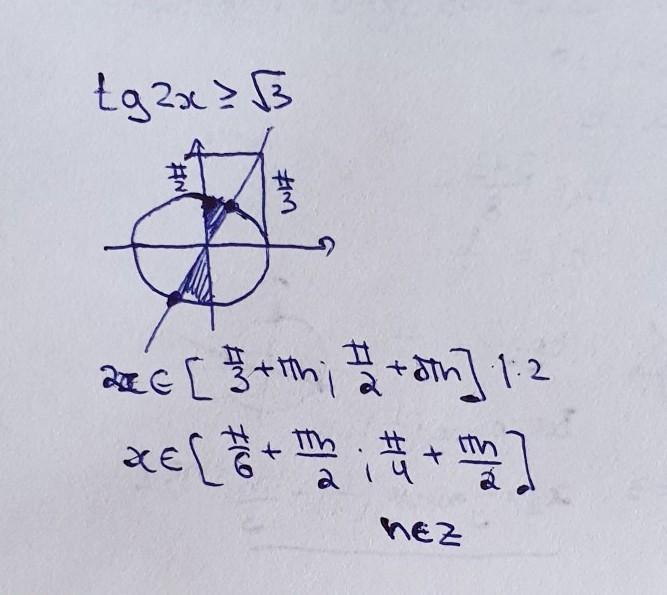 tg2x ≥ √3
π/2 π/3
2x ∈ [π/3 + πn; π/2 + πn] |:2
x ∈ [π/6 + πn/2; π/4 + πn/2]
n ∈ Z